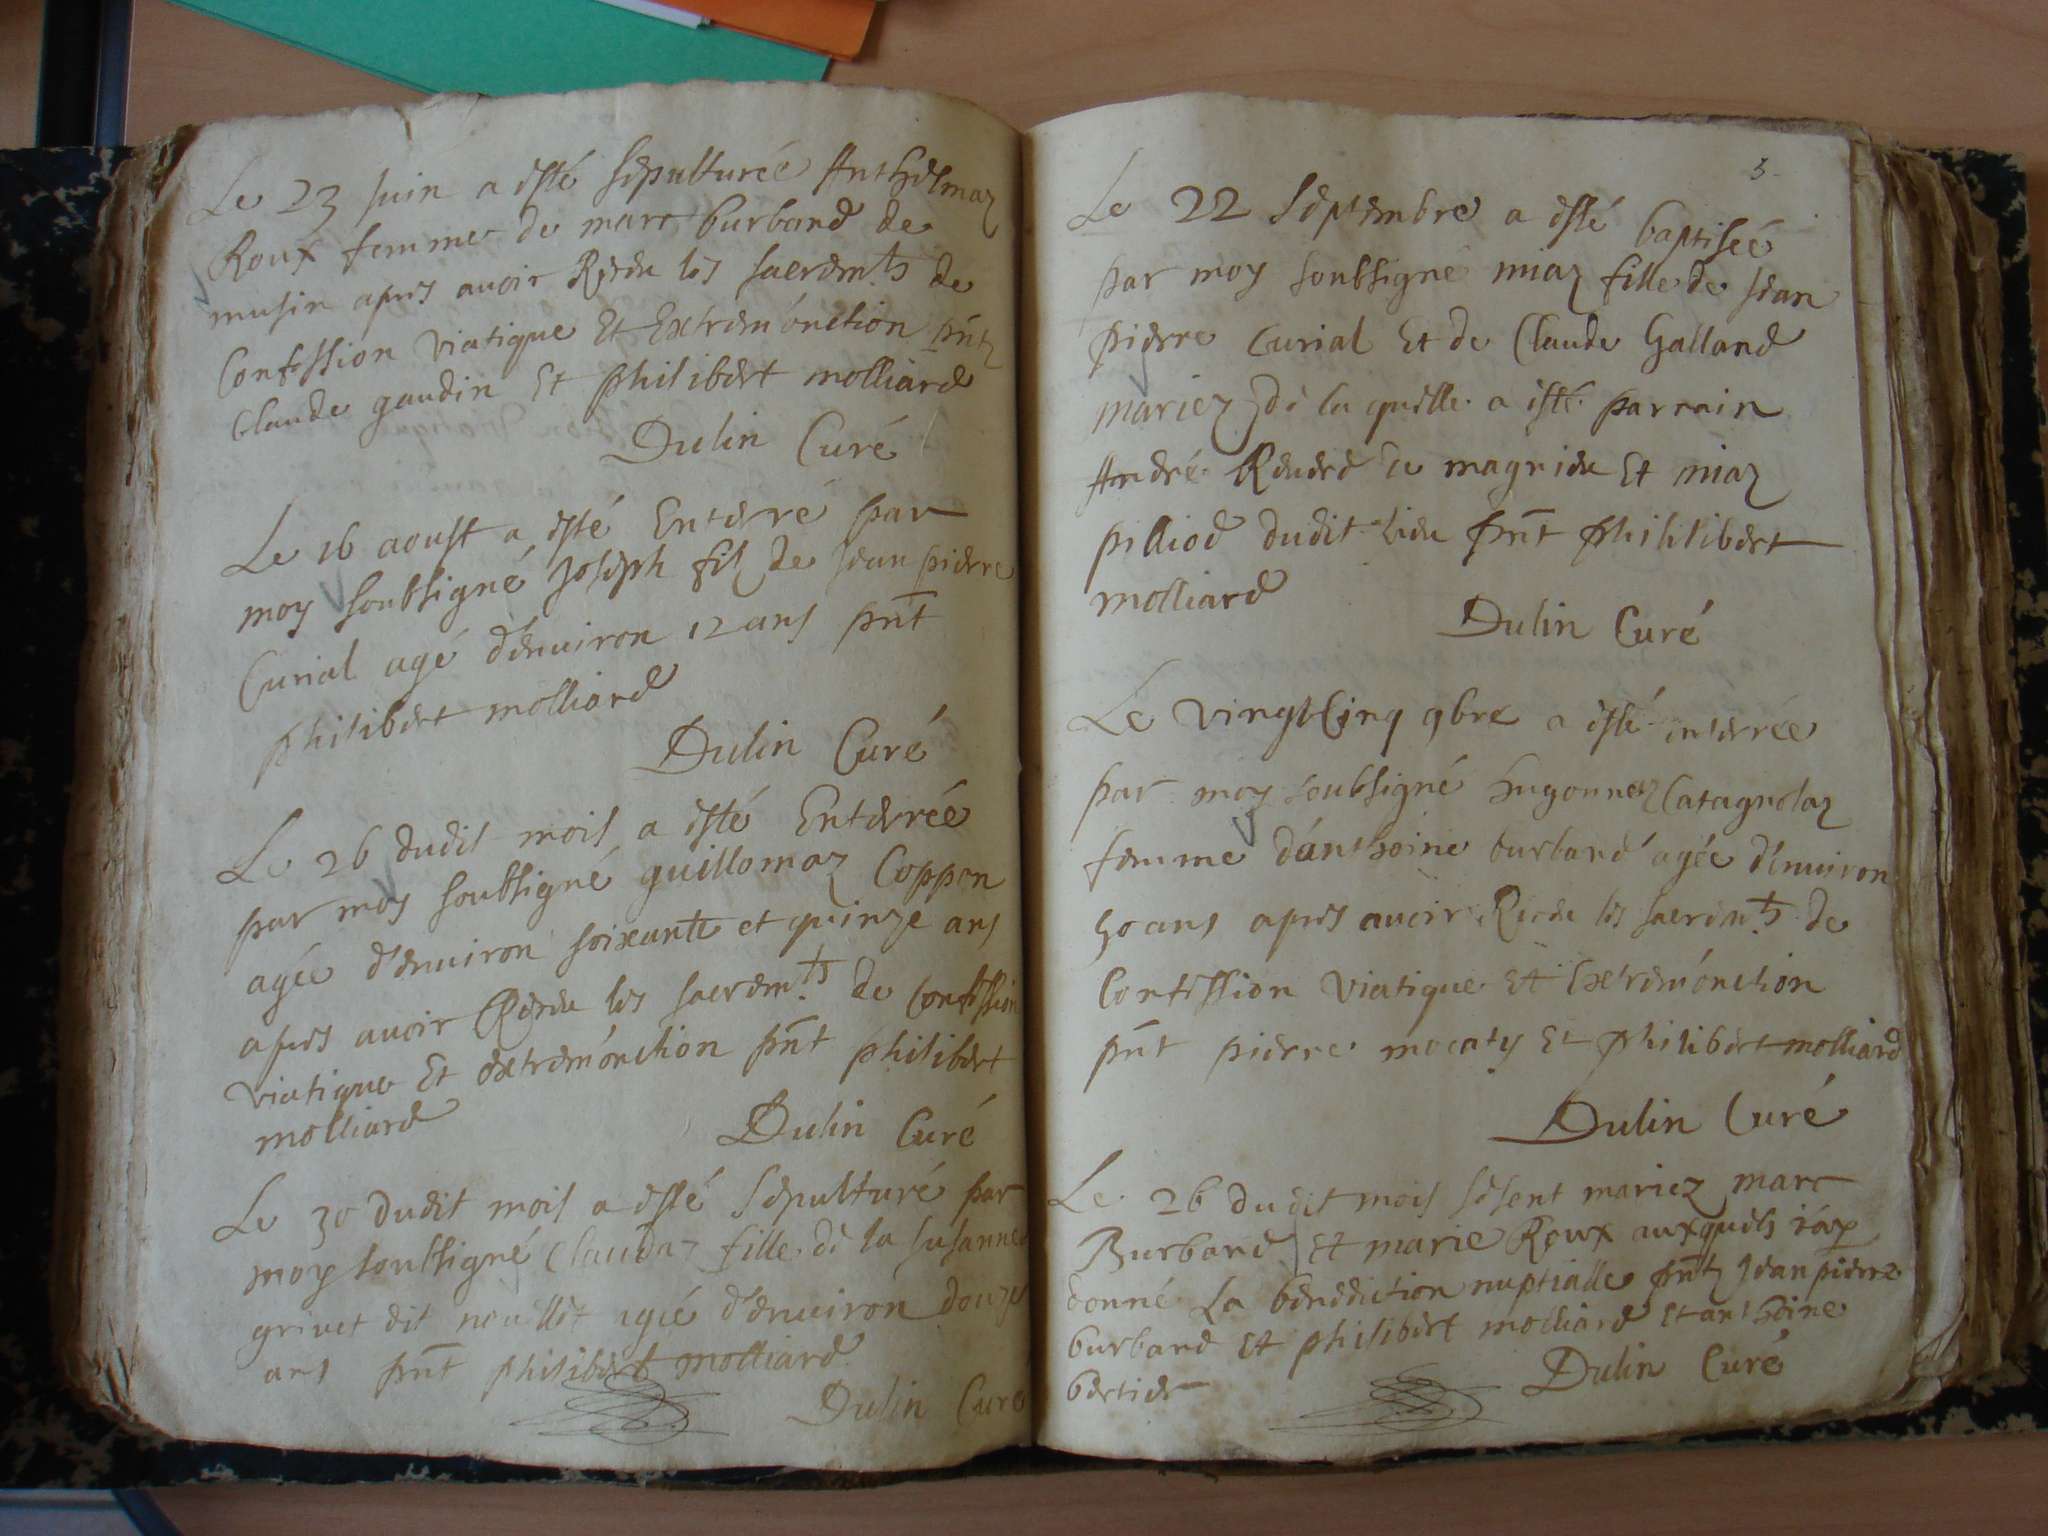 Le 23 juin a esté sépulturée Anthelmaz
Roux femme de marc burband de
musin apres avoir Receu les sacrem.ts de
Confession viatique Et Extremónction pñtz
Claude gaudin Et philibert molliard
Dulin Curé
Le 16 aoust a esté Enterré par
moy soubsigné Joseph filz de jean pierre
Curial agé d'environ 12 ans pñt
philibert molliard
Dulin Curé
Le 26 dudit mois a esté Enterrée
par moy soubsigné guillomaz Coppon
agée d'environ soixante et quinze ans
apres avoir Receu les sacrem.ts de Confession
viatique Et extremónction pñt philibert
molliard
Dulin Curé
Le 30 dudit mois a esté Sepulturé par
moy soubsigné Claudaz fille de la susanne
grivet dit agée d'environ douze
ans pñt philibert molliard
Dulin Curé
5
Le 22 Septembre a esté baptiseé
par moy soubsigné miaz fille de jean
pierre Curial Et de Claude Galland
mariez de la quelle a esté parrain
André de magnieu Et miaz
pilliod dudit lieu pñt philibert
molliard
Dulin Curé
Le vingt Cinq 9bre a esté enterrée
par moy soubsigné hugonnez Catagnolaz
femme d'anthoine burband agée d'environ
50 ans apres avoir Receu les sacrem.ts de
Confession viatique Et Extremónction
pñt pierre mocaty Et philibert molliard
Dulin Curé
Le 26 dudit mois se sont mariez marc
Burband Et marie Roux auxquels j'ay
donné La benediction nuptialle pñtz jean pierre
burband Et philibert molliard Et anthoine
bertier
Dulin Curé